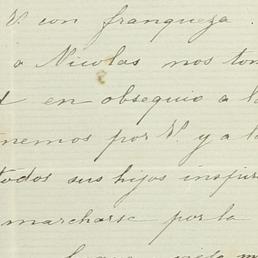 V. con franqueza.
a Nicolas nos ton
en obsequio a la
nemos por V. y a l
todos sus hijos inspir
marcharse por la